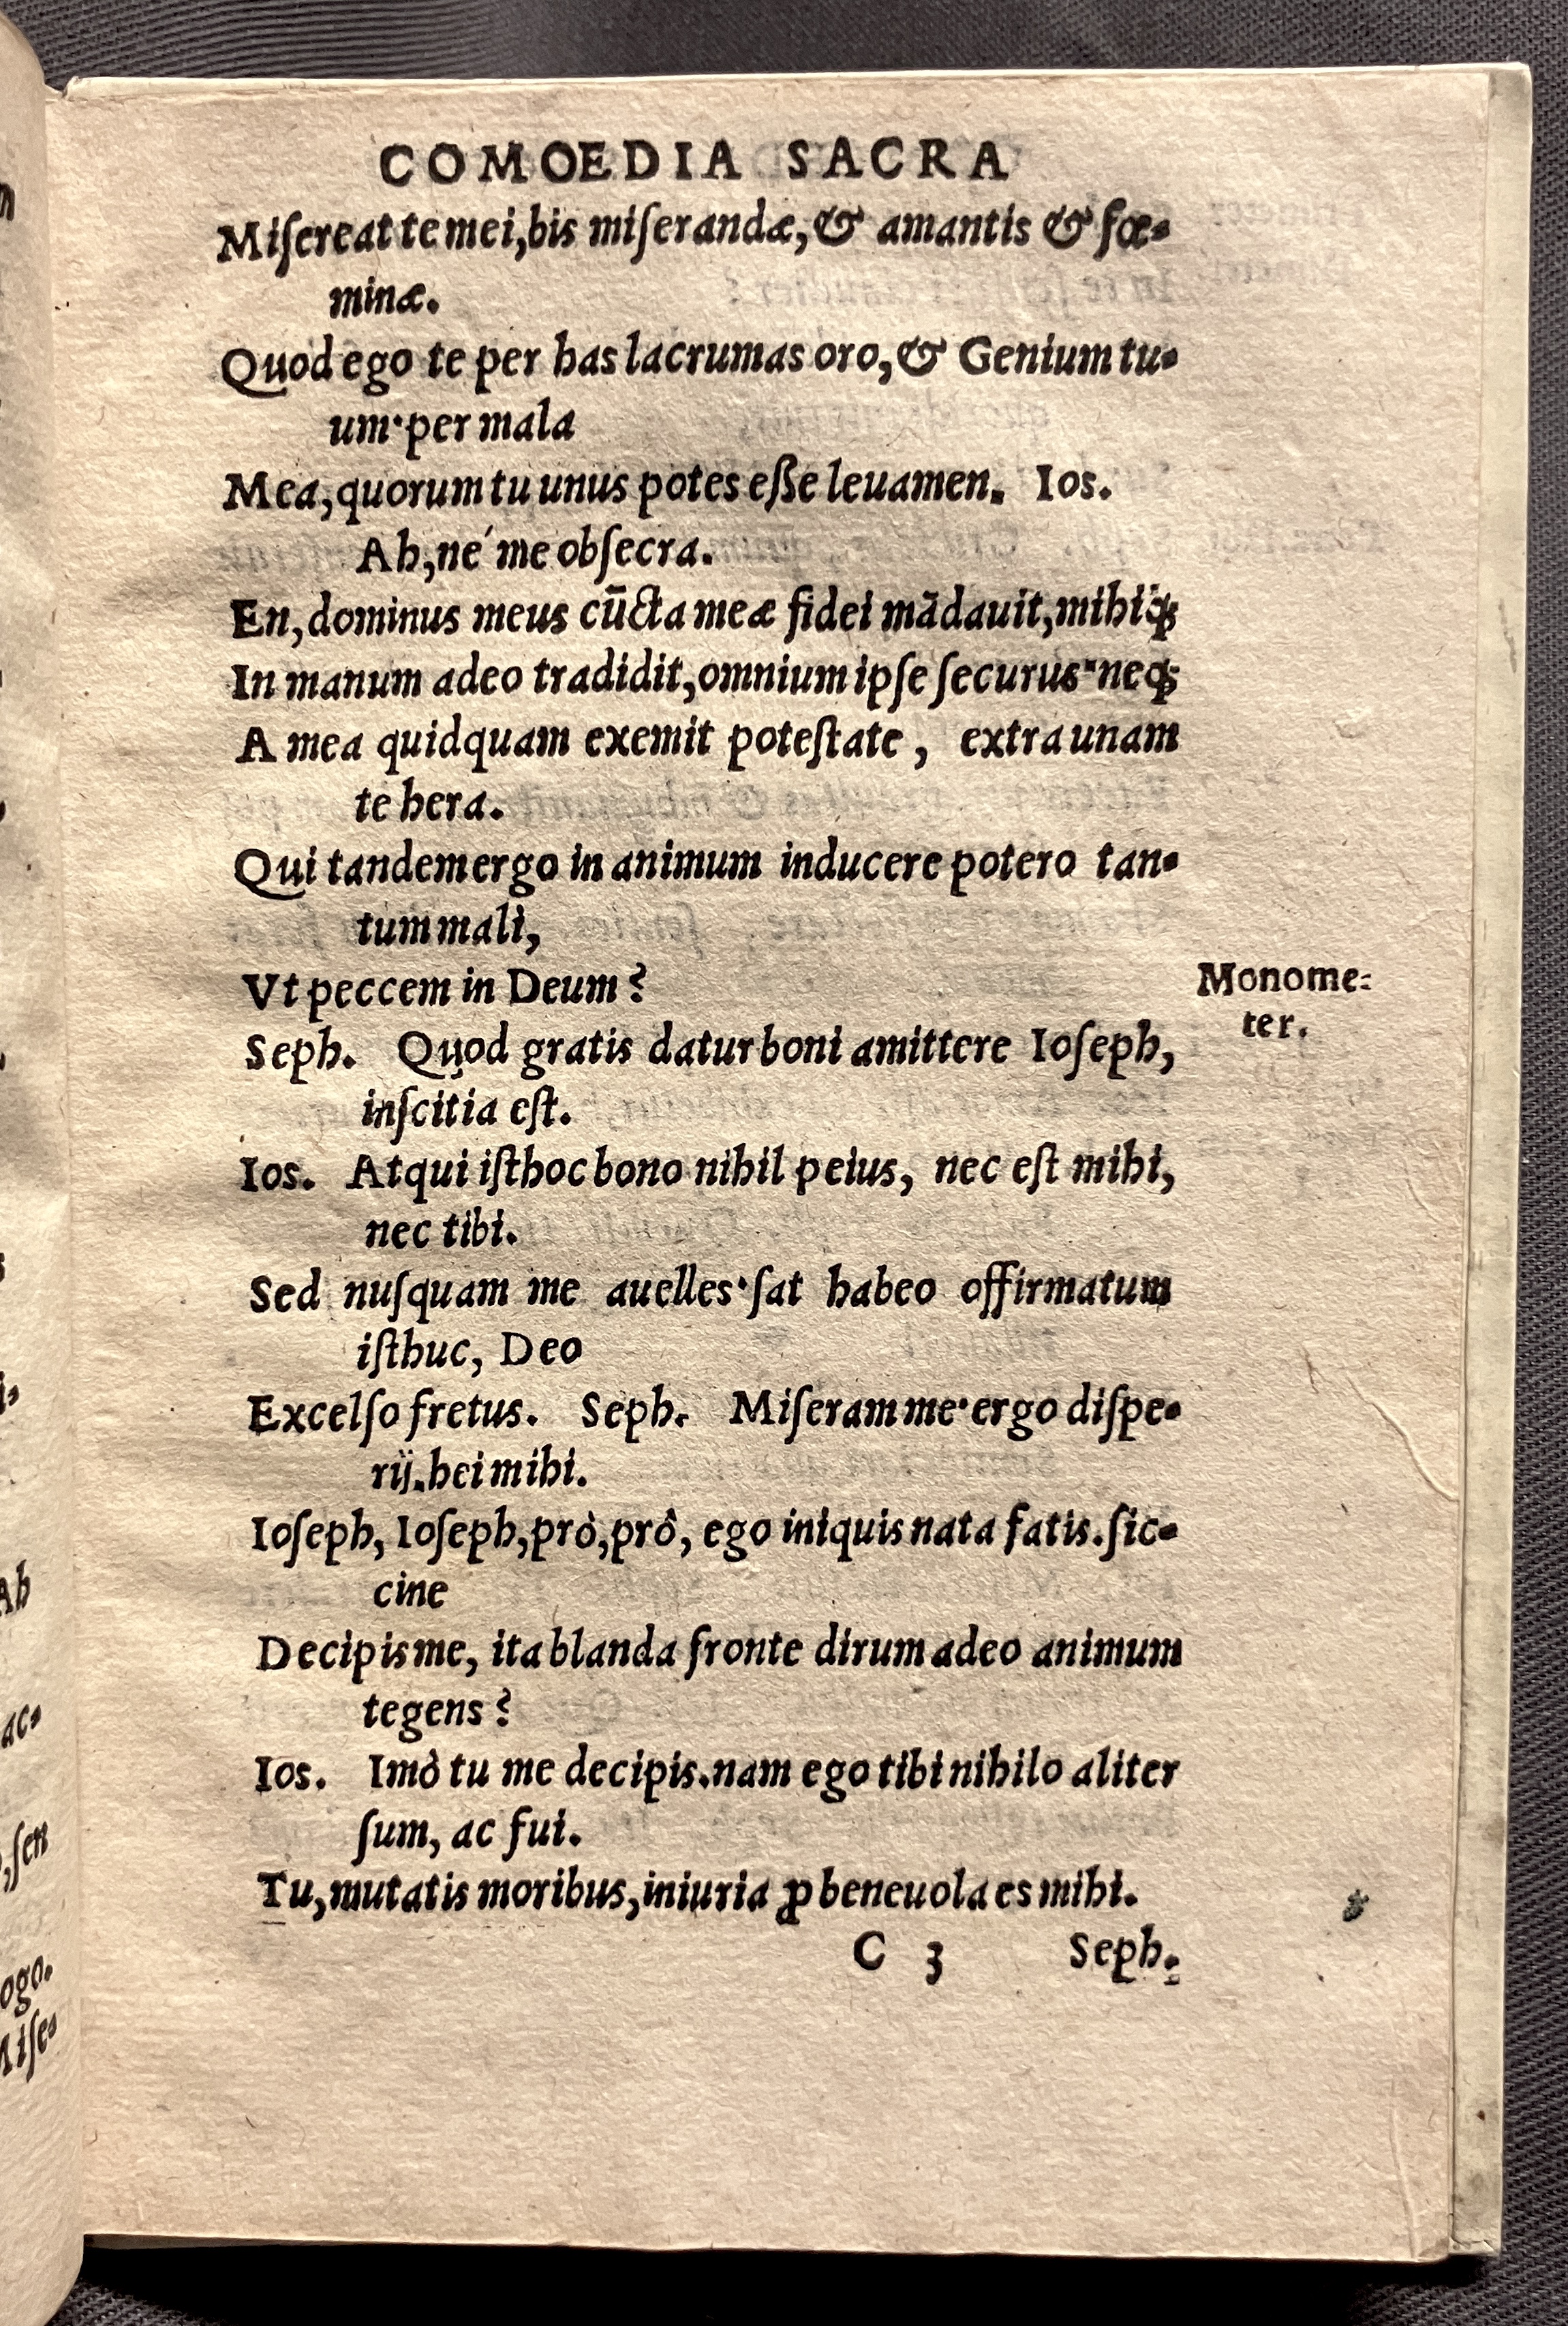 COMOEDIA SACRA
Miſereat te mei, bis miſerandæ, & amantis & fœ-
minæ.
Quod ego te per has lacrumas oro, & Genium tu-
um·per mala
Mea, quorum tu unus potes eße leuamen. Ios.
Ah, ne´ me obſecra.
En, dominus meus cūcta meæ fidei mādauit, mihiq́ꝫ
In manum adeo tradidit, omnium ipſe ſecurus·neqꝫ
A mea quidquam exemit poteſtate, extra unam
te hera.
Qui tandem ergo in animum inducere potero tan-
tum mali,
Vt peccem in Deum?
Monome-
ter.
Seph. Quod gratis datur boni amittere Ioſeph,
inſcitia eſt.
Ios. Atqui iſthoc bono nihil peius, nec eſt mihi,
nec tibi.
Sed nuſquam me auelles·ſat habeo offirmatum
iſthuc, Deo
Excelſo fretus. Seph. Miſeram me·ergo diſpe-
rij. hei mihi.
Ioſeph, Ioſeph, prò, prô, ego iniquis nata fatis. ſic-
cine
Decipis me, ita blanda fronte dirum adeo animum
tegens?
Ios. Imò tu me decipis. nam ego tibi nihilo aliter
ſum, ac fui.
Tu, mutatis moribus, iniuria ꝓ beneuola es mihi.
C 3 Seph.